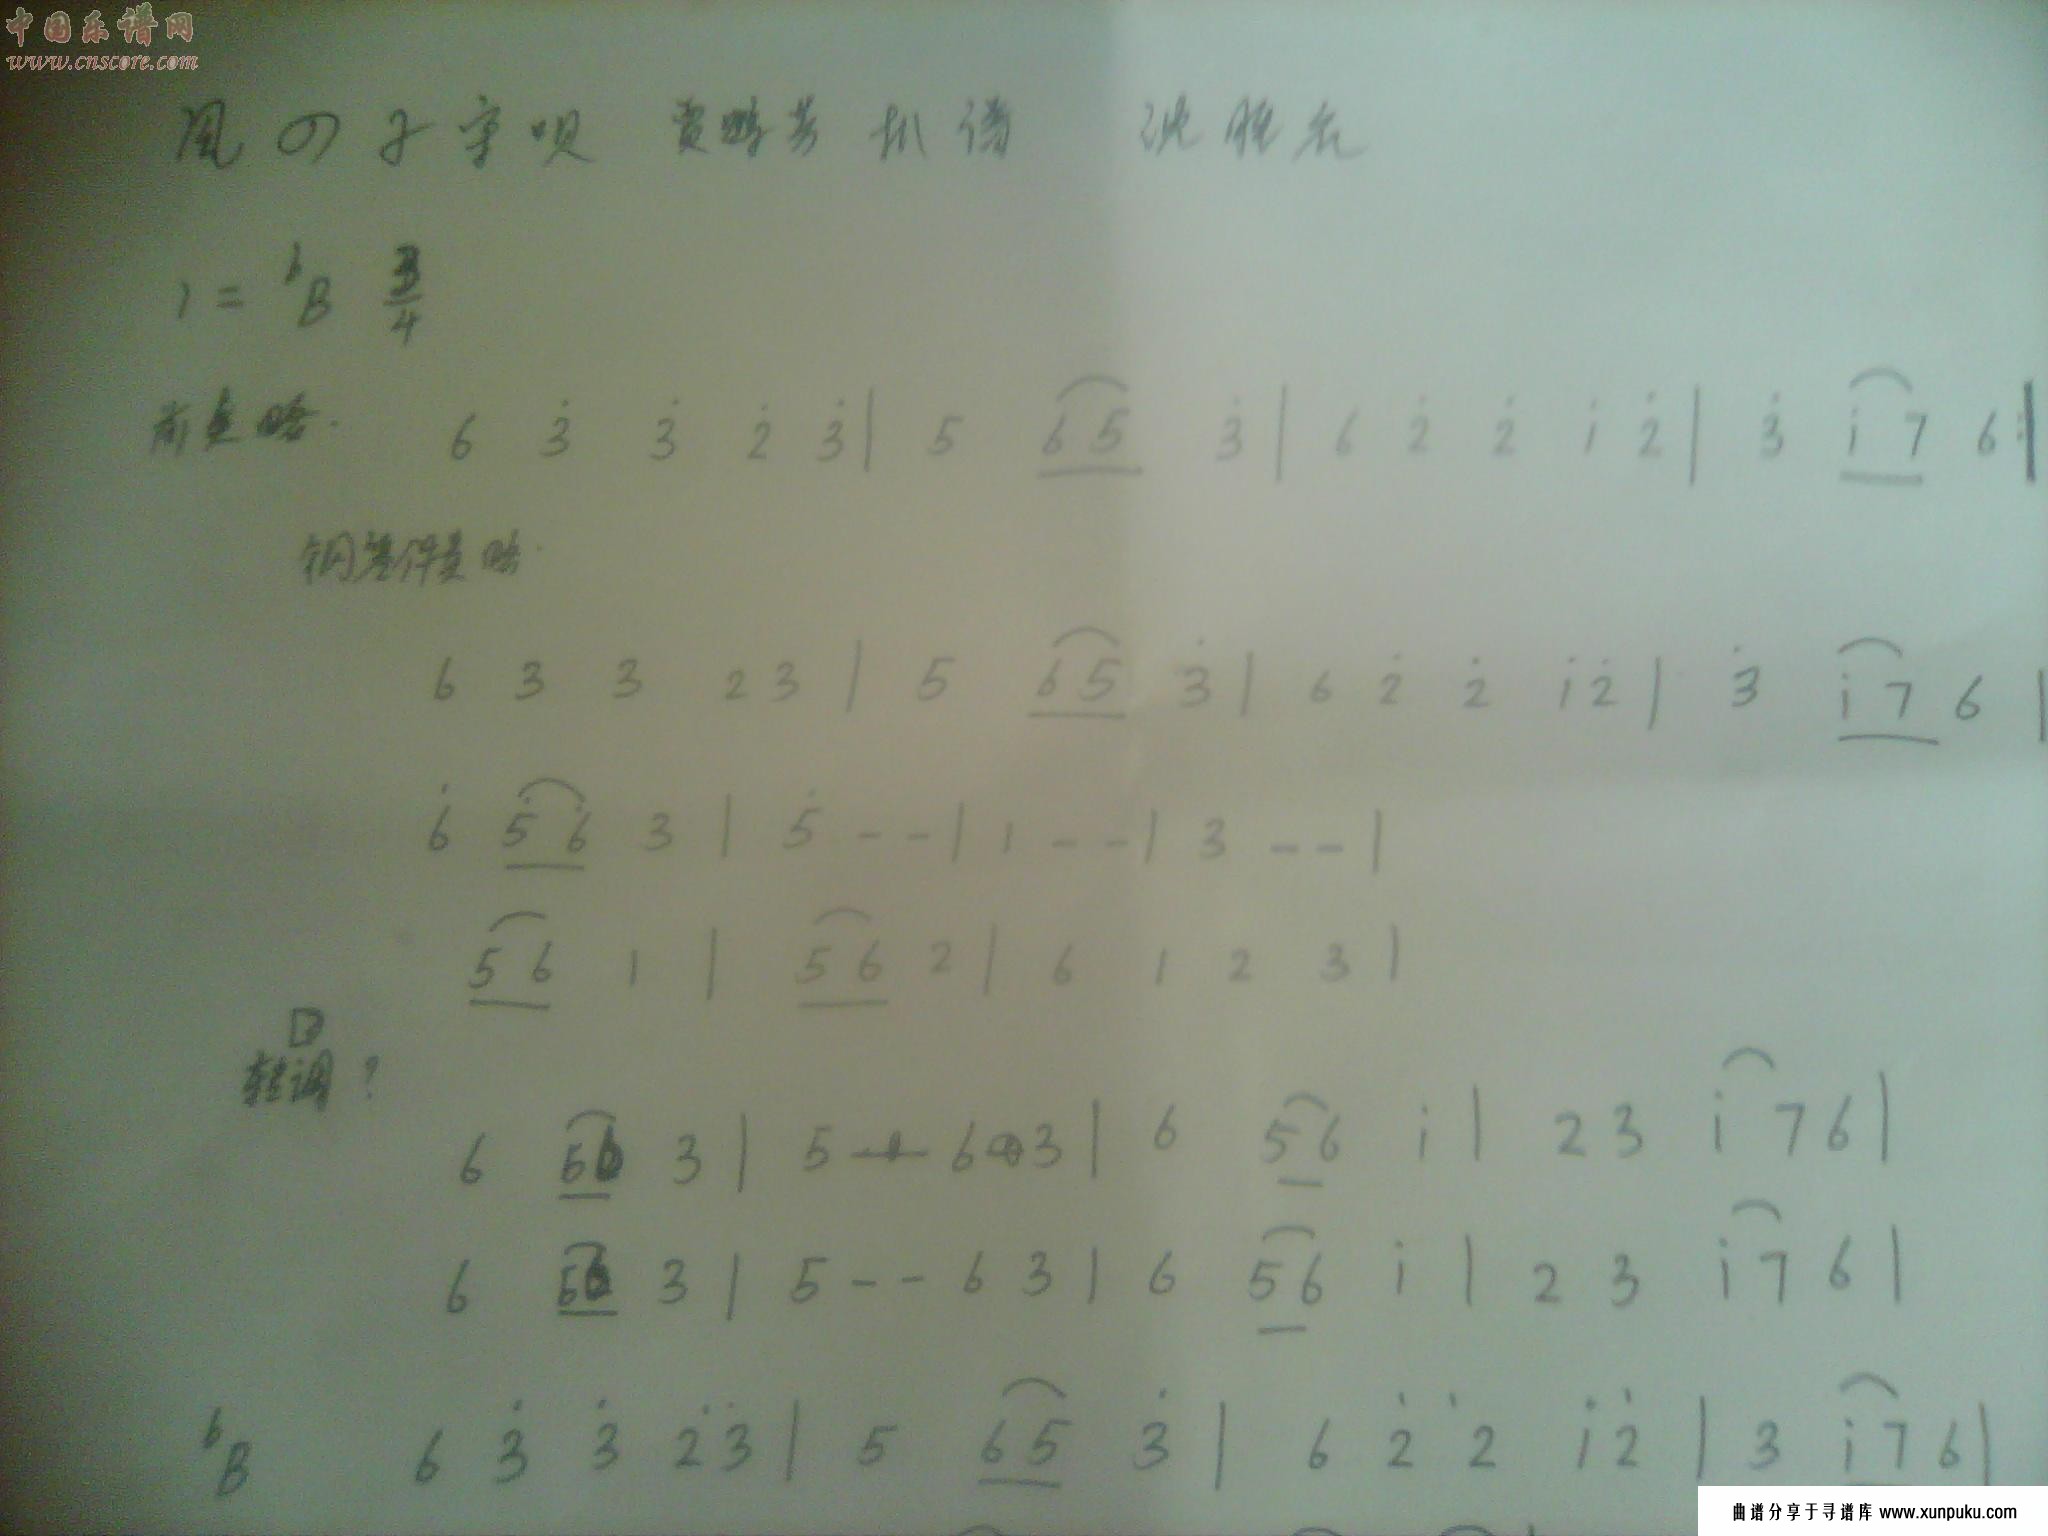 中国乐谱网
www.cnscore.com
風の子守唄 贾鹏芳 扒谱 沈
1=ᵇB 3/4
前奏略. 6 3̇ 3̇ 2̇ 3̇ | 5 6 5 3̇ | 6 2̇ 2̇ i 2̇ | 3̇ i 7 6 :|
钢琴伴奏略.
6 3 3 2 3 | 5 6 5 3̇ | 6 2̇ 2̇ i 2̇ | 3̇ i 7 6 |
6̇ 5̇ 6̇ 3 | 5̇ - - | 1 - - | 3 - - |
5 6 1 | 5 6 2 | 6 1 2 3 |
D
转调?
6 5 6 3 | 5 - - 6 3 | 6 5 6 i | 2 3 i 7 6 |
6 5 6 3 | 5 - - 6 3 | 6 5 6 i | 2 3 i 7 6 |
ᵇB 6 3̇ 3̇ 2̇ 3̇ | 5 6 5 3̇ | 6 2̇ 2̇ i 2̇ | 3 i 7 6 |
曲谱分享于寻谱库 www.xunpuku.com